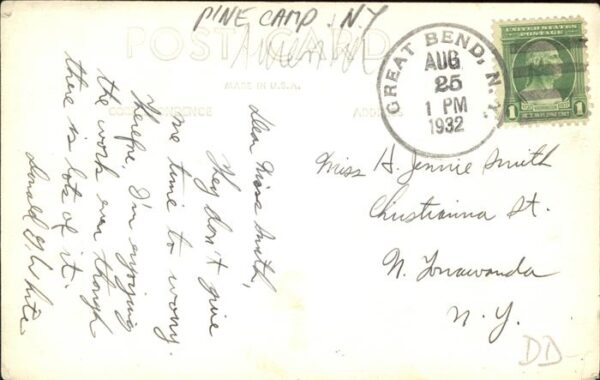 PINE CAMP. N.Y
POST CARD
MADE IN U.S.A.
CORRESPONDENCE
ADDRESS
GREAT BEND, N.Y.
AUG
25
1 PM
1932
UNITED STATES
POSTAGE
1 1
Dear Miss Smith,
They don't give
me time to worry.
Therefore, I'm enjoying
the work even though
there is lots of it.
Donald G. White
Miss H. Jennie Smith
Christianna St.
N. Tonawanda
N. Y.
DD